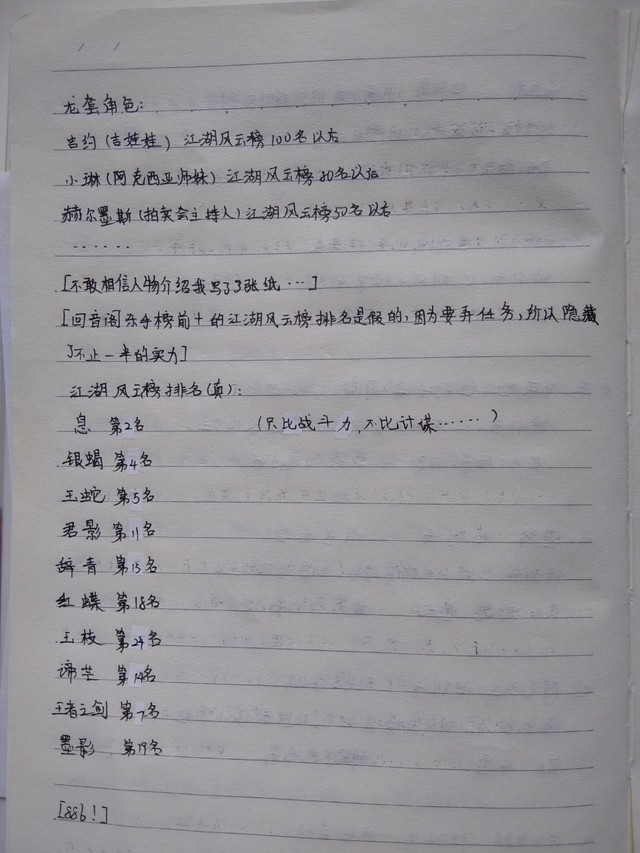 龙套角色:
吉约(吉娃娃) 江湖风云榜100名以后
小琳(阿克西亚师妹) 江湖风云榜80名以后
赫尔墨斯(拍卖会主持人) 江湖风云榜50名以后
……
[不敢相信人物介绍我写了3张纸…]
[回音阁杀手榜前十的江湖风云榜排名是假的,因为要弄任务,所以隐藏
了不止一半的实力]
江湖风云榜排名(真):
息 第2名 (只比战斗力,不比计谋……)
银蝎 第4名
王蛇 第5名
君影 第11名
辞青 第15名
红蝶 第18名
玉枝 第24名
谛芒 第14名
王者之剑 第7名
墨影 第19名
[886!]